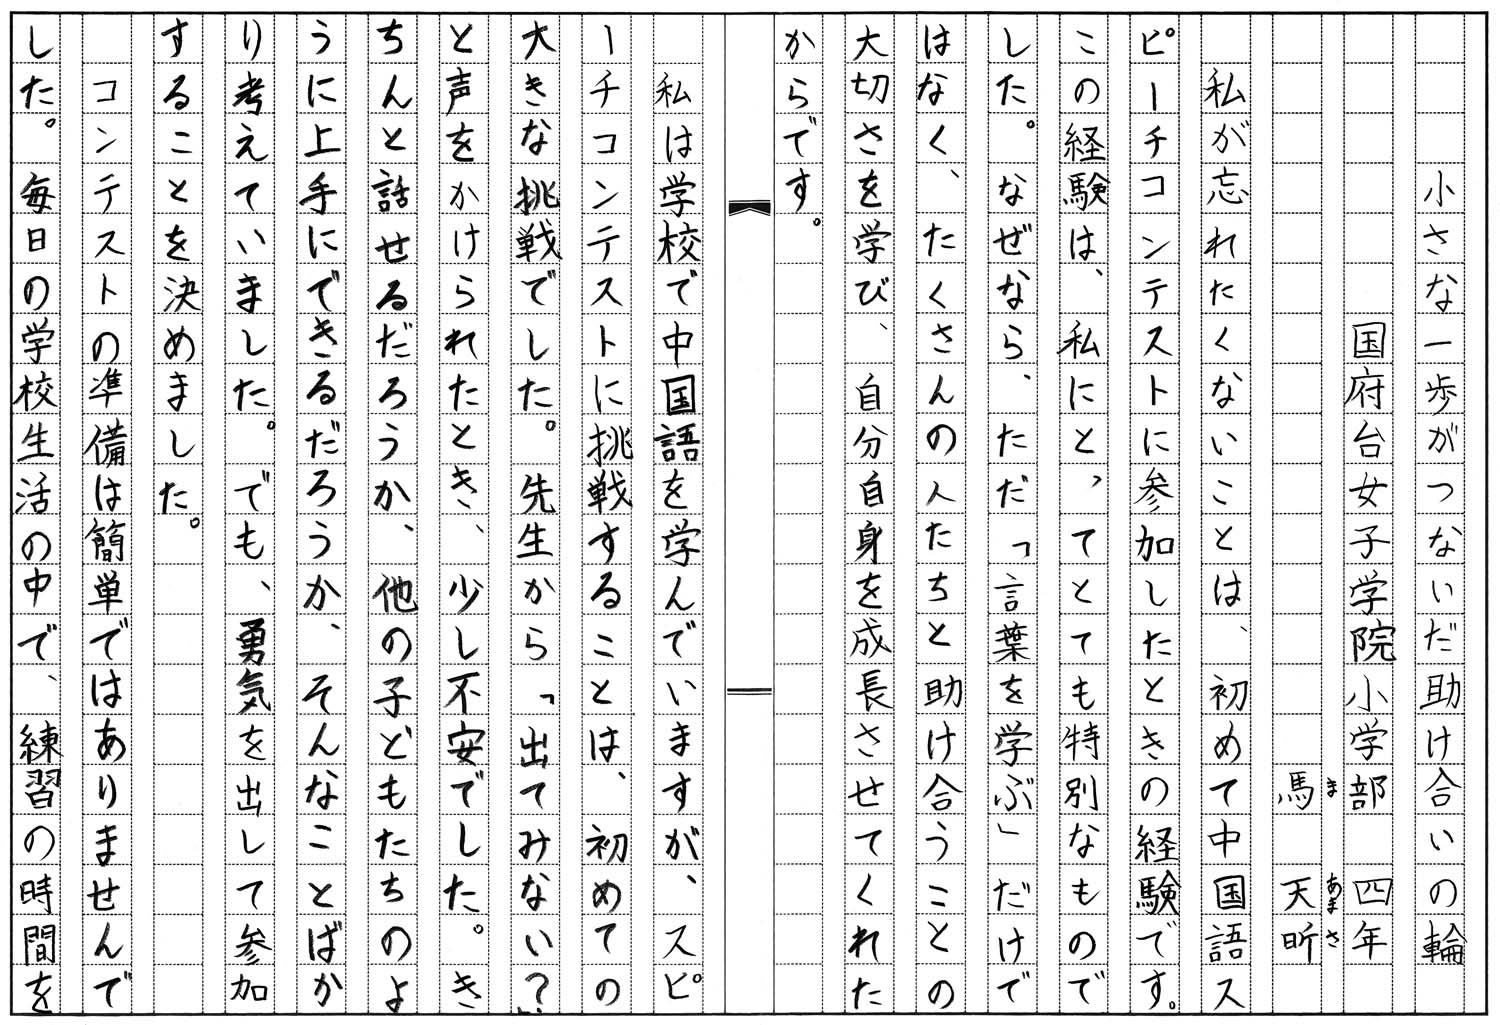 小さな一歩がつないだ助け合いの輪
国府台女子学院小学部 四年
馬 天昕
ま あまさ
私が忘れたくないことは、初めて中国語ス
ピーチコンテストに参加したときの経験です。
この経験は、私にとってとても特別なもので
した。なぜなら、ただ「言葉を学ぶ」だけで
はなく、たくさんの人たちと助け合うことの
大切さを学び、自分自身を成長させてくれた
からです。
私は学校で中国語を学んでいますが、スピ
ーチコンテストに挑戦することは、初めての
大きな挑戦でした。先生から「出てみない?」
と声をかけられたとき、少し不安でした。き
ちんと話せるだろうか、他の子どもたちのよ
うに上手にできるだろうか、そんなことばか
り考えていました。でも、勇気を出して参加
することを決めました。
コンテストの準備は簡単ではありませんで
した。毎日の学校生活の中で、練習の時間を